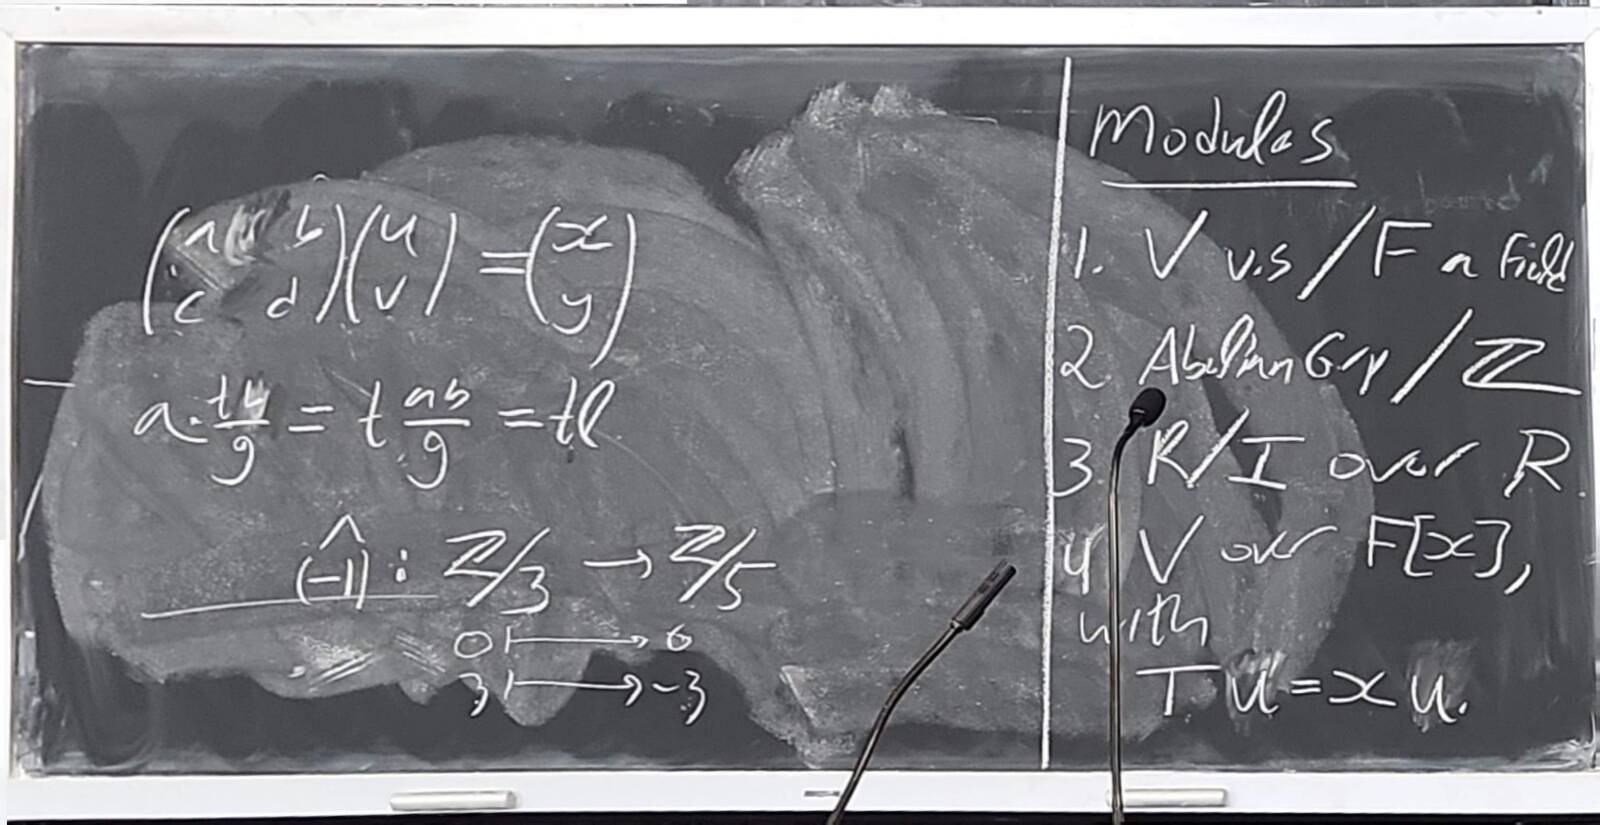 (a b
c d)(u
v) = (x
y)
a · tb/g = t ab/g = tl
(-1)^ : Z/3 → Z/5
0 ↦ 0
3 ↦ -3
Modules
1. V v.s / F a Field
2 Abelian Grp / Z
3 R/I over R.
4 V over F[x],
with
T u = x u.